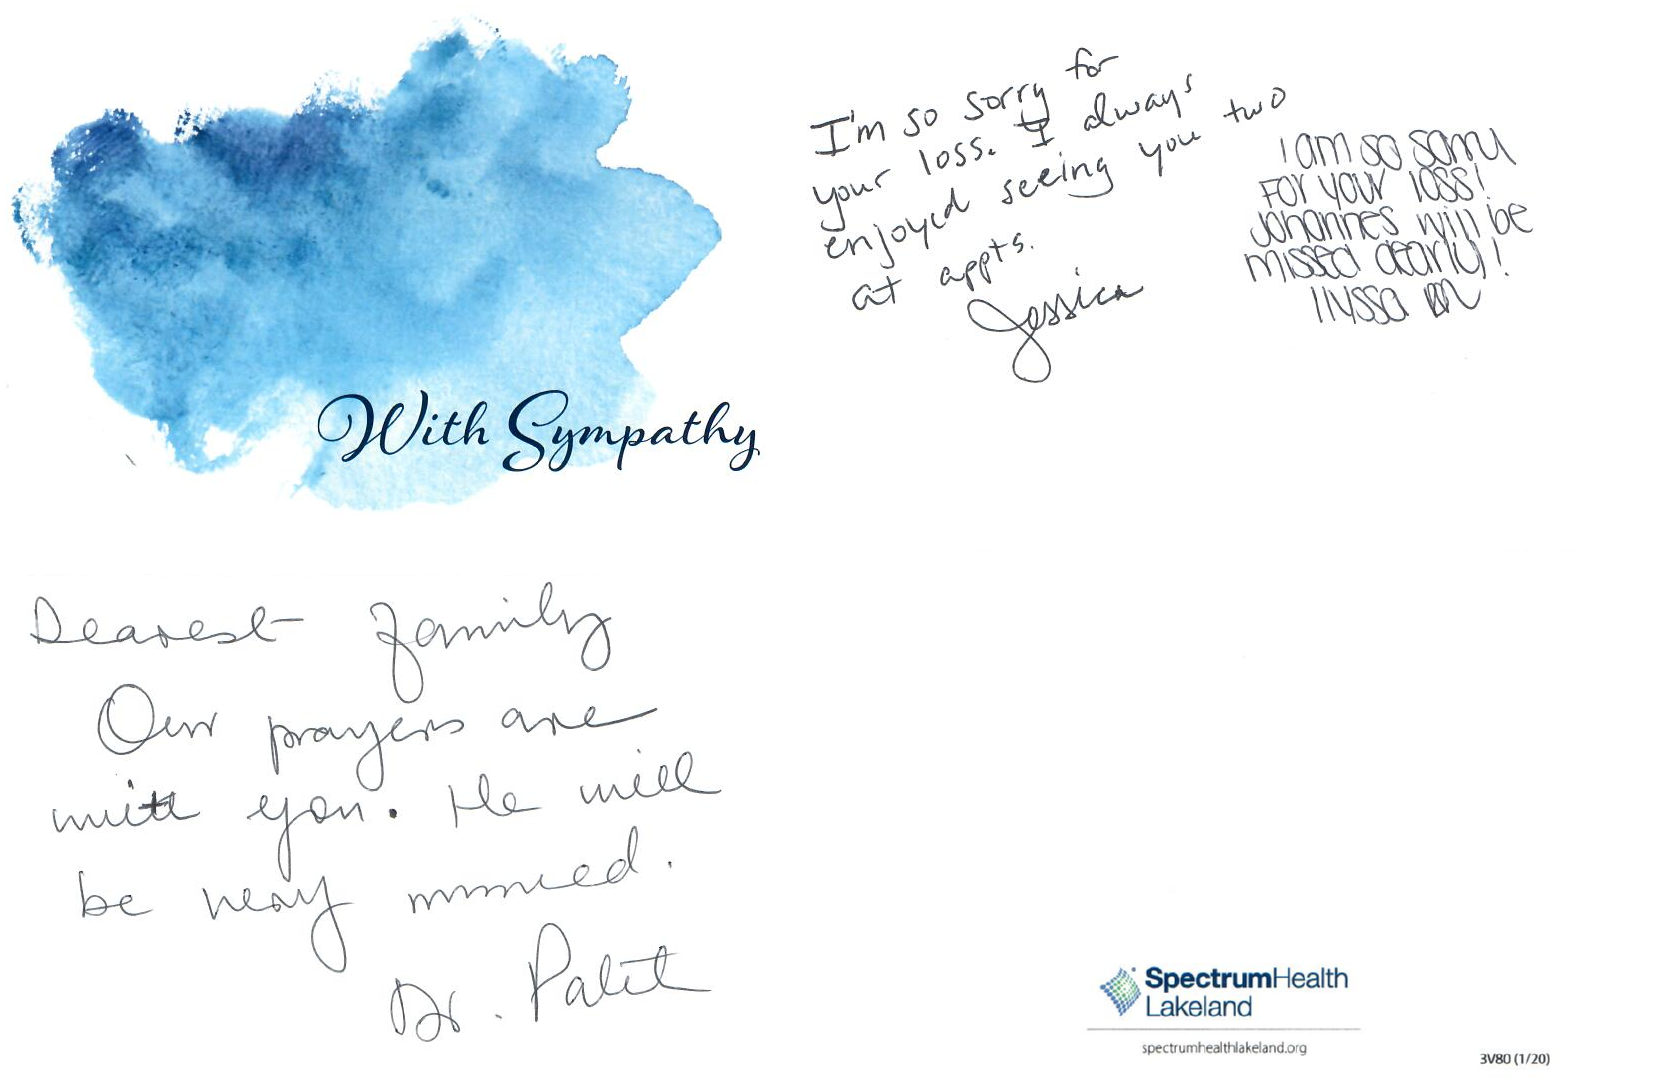 With Sympathy
I'm so sorry for
your loss. I always
enjoyed seeing you two
at appts.
Jessica
I am so sorry
For your loss!
Johannes will be
missed dearly!
Ilyssa RN
Dearest family
Our prayers are
with you. He will
be very missed.
Dr. Palit
SpectrumHealth
Lakeland
spectrumhealthlakeland.org
3V80 (1/20)